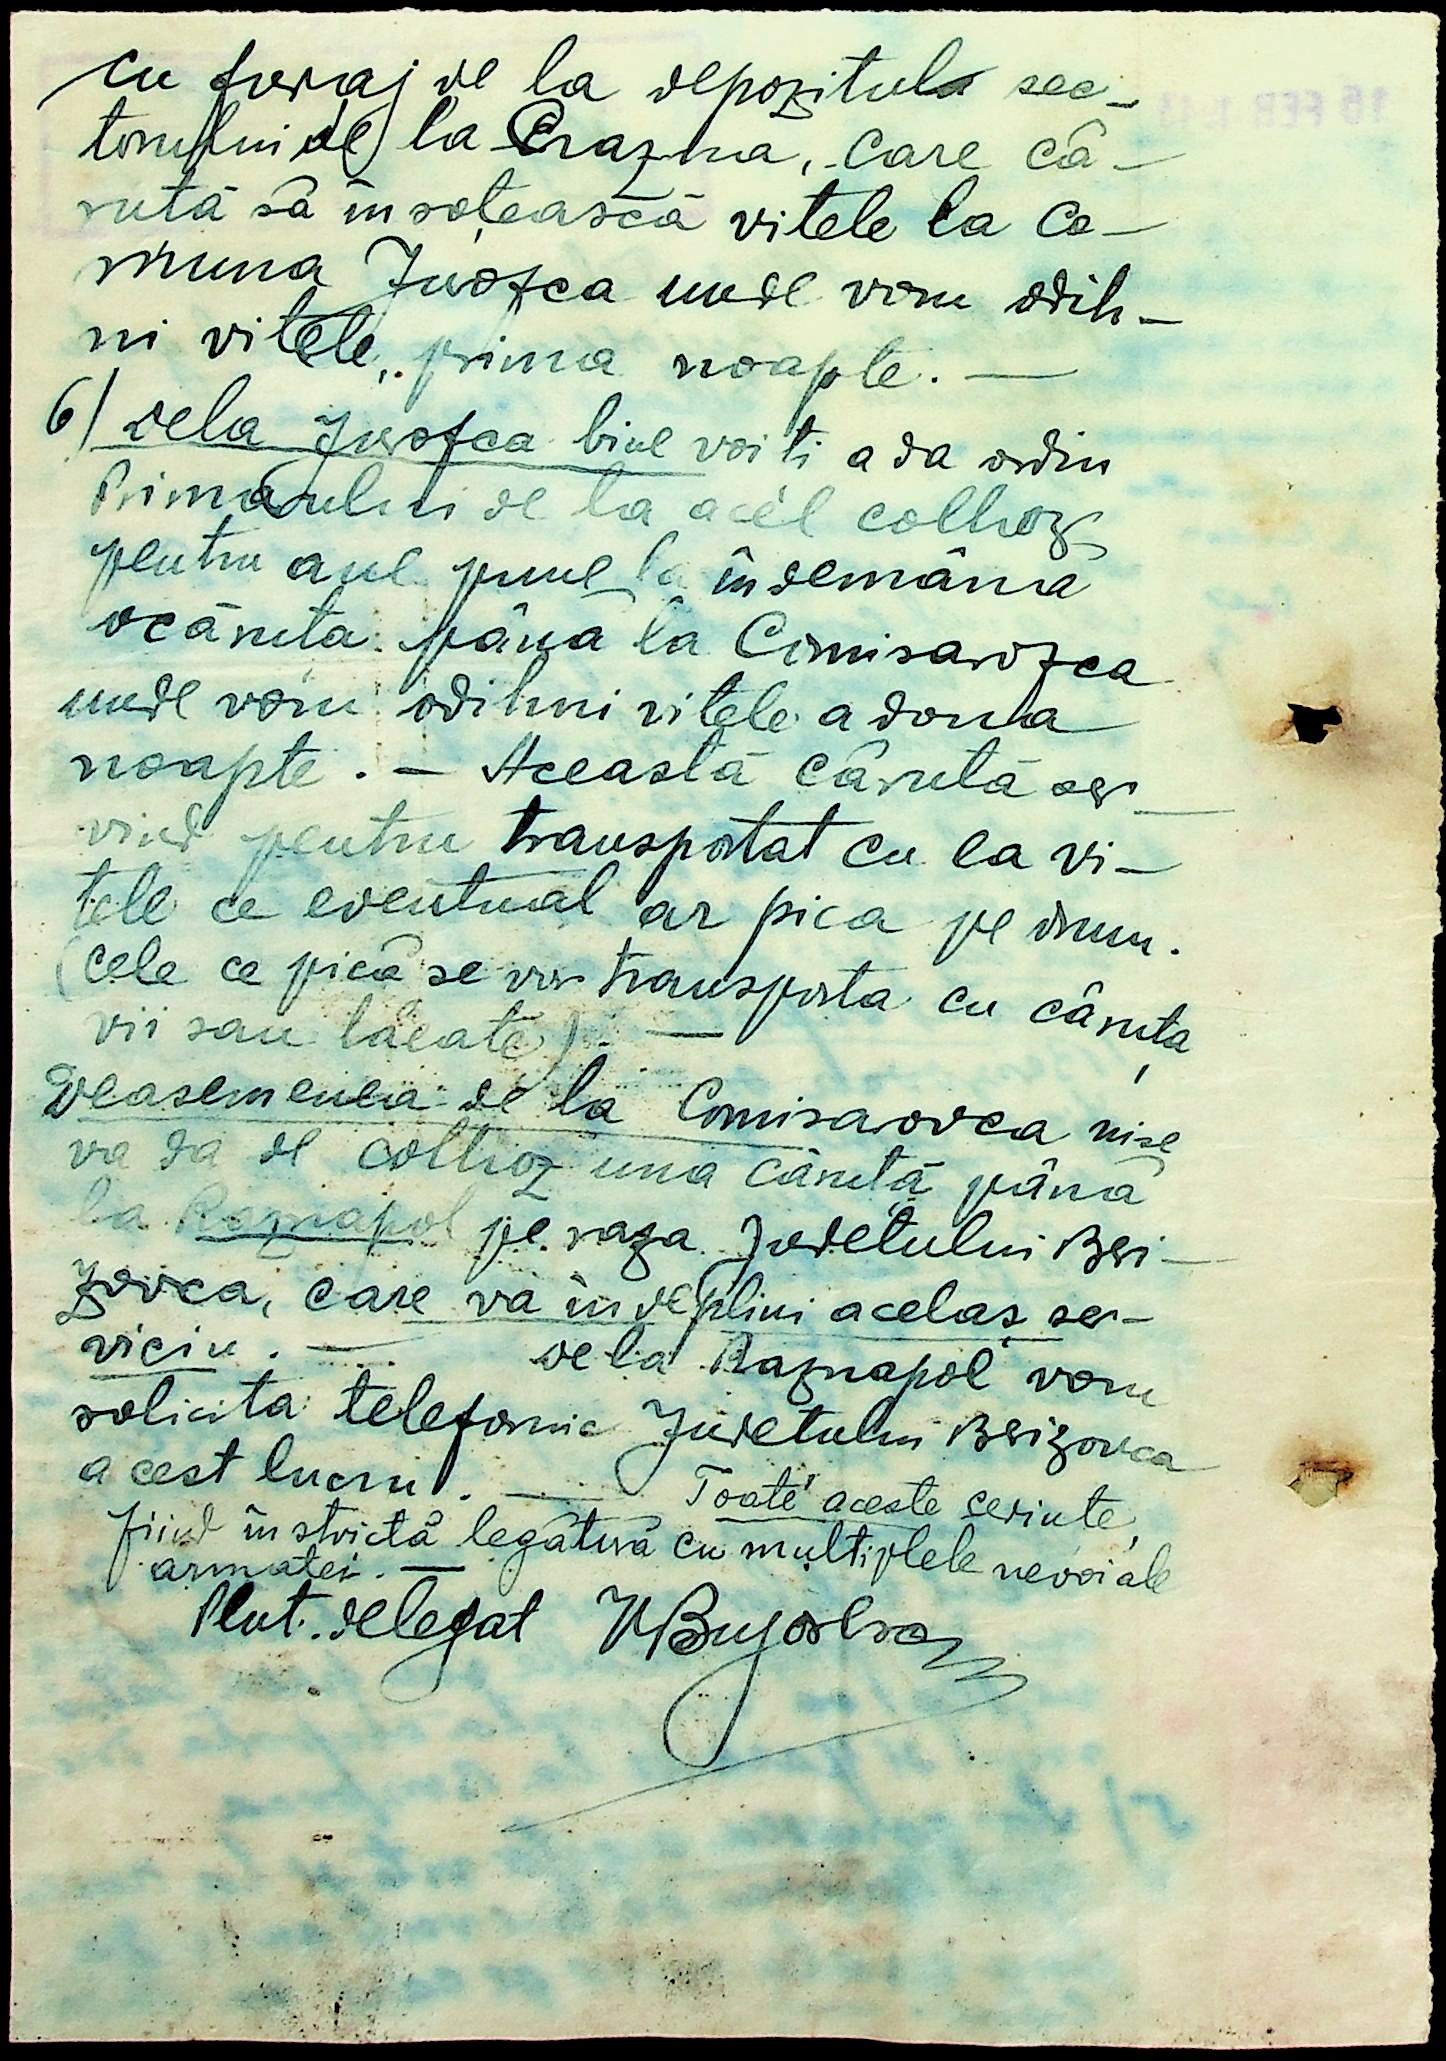 cu furaj de la depozitula sec-
torului de la Crazna, care că-
ruță să însoțească vitele la Co-
muna Juosfca unde vom odih-
ni vitele, prima noapte. —
6) dela Juosfca bine voiti a da ordin
Primarului de la acel colhoz
pentru ane pune la îndemâna
ocăruta până la Comisarofca
unde vom odihni vitele a doua
noapte. — Această căruță ser-
vind pentru transportat cu ea vi-
tele ce eventual ar pica pe drum.
(cele ce pică se vor transporta cu căruța
vii sau tăeate). —
Deasemenea de la Comisarovca nise
va da de colhoz una căruță până
la Raznapol pe raza Judetului Beri-
zovca, care va îndeplini acelaș ser-
viciu. — dela Raznapol vom
solicita telefonic Judetului Berizovca
acest lucru. — Toate aceste cerințe,
fiind în strictă legătură cu multiplele nevoi ale
armatei. —
Plut. delegat
16 FEB